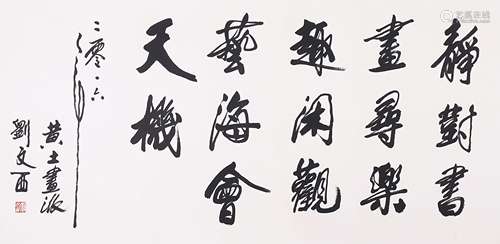 靜對書
畫尋樂
趣闲觀
藝海會
天機
二零一六年
黄土畫派
劉文西